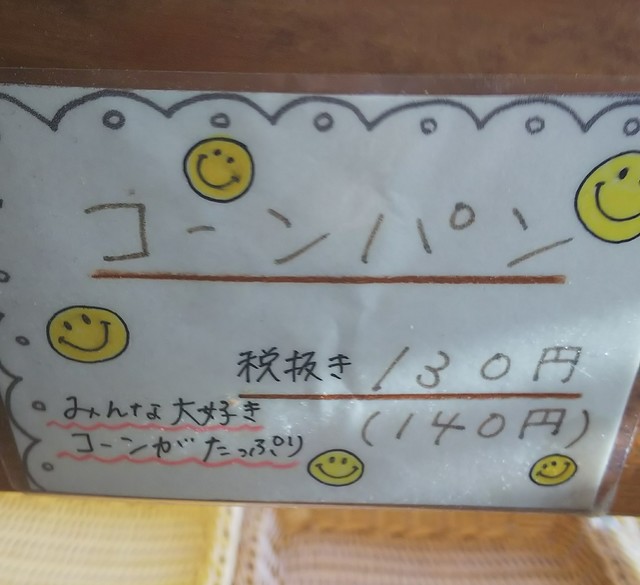 コーンパン
税抜き 130円
(140円)
みんな大好き
コーンがたっぷり